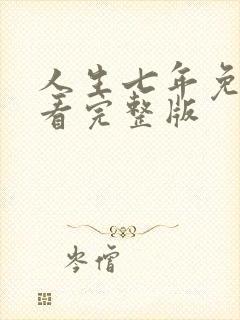 人生七年免
看完整版
岑僧